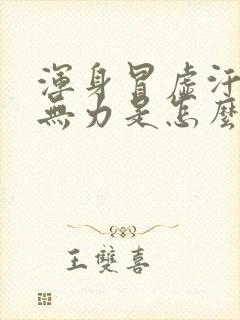 渾身冒虛汗
無力是怎麼
王雙喜